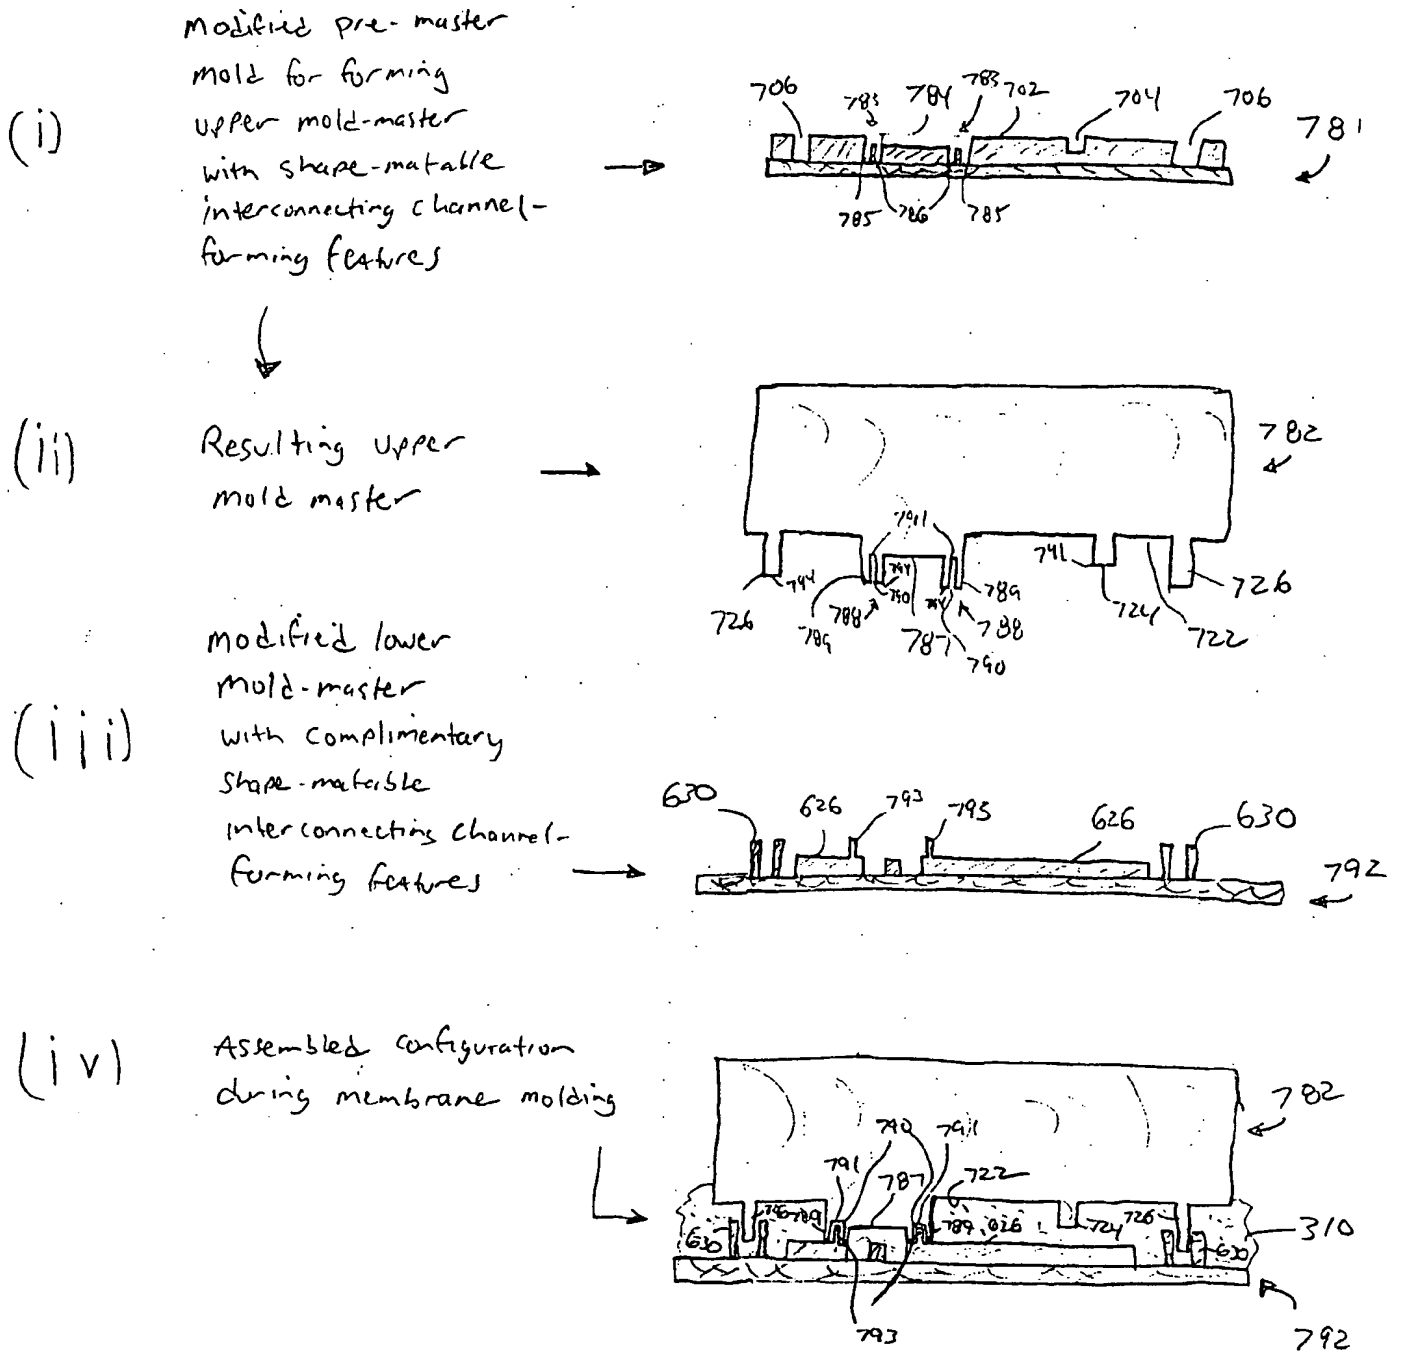 Modified pre-master
mold for forming
upper mold-master
with shape-matable
interconnecting channel-
forming features
(i)
706
783
784
783
702
704
706
781
785
786
785
(ii)
Resulting upper
mold master
782
791
794
794
790
794
741
789
726
726
789
788
787
790
788
724
722
(iii)
modified lower
mold-master
with complimentary
shape-matable
interconnecting channel-
forming features
630
626
793
793
626
630
792
(iv)
Assembled configuration
during membrane molding
782
790
791
791
787
722
789
789
626
724
726
630
630
310
793
792